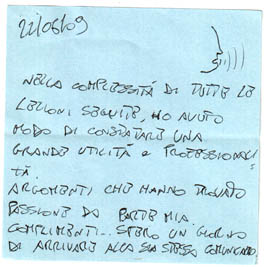 22/05/09
NELLA COMPLESSITÁ DI TUTTE LE
LEZIONI SEGUITE, HO AVUTO
MODO DI CONSTATARE UNA
GRANDE UTILITÁ E PROFESSIONALI
TÁ.
ARGOMENTI CHE HANNO TROVATO
PASSIONE DA PARTE MIA.
COMPLIMENTI.. SPERO UN GIORNO
DI ARRIVARE ALLA SUA STESSA